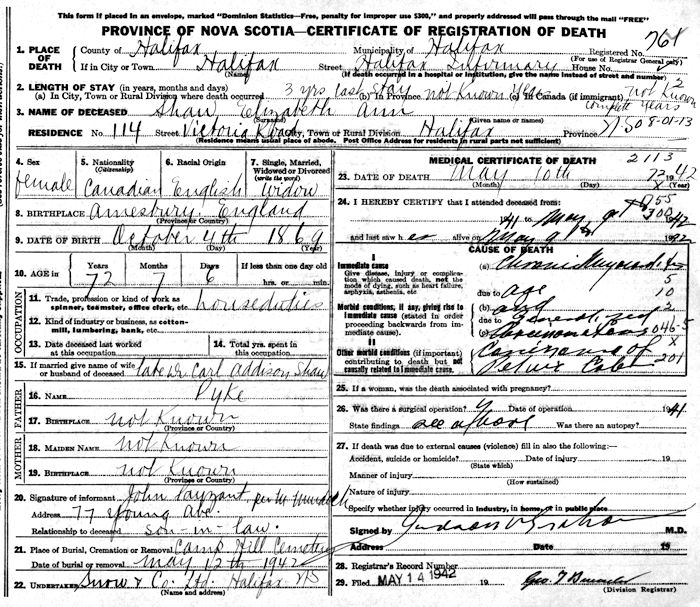 This form if placed in an envelope, marked "Dominion Statistics—Free, penalty for improper use $300," and properly addressed will pass through the mail "FREE"
PROVINCE OF NOVA SCOTIA—CERTIFICATE OF REGISTRATION OF DEATH
1. PLACE OF DEATH
County of Halifax Municipality of Halifax Registered No. 768
(For use of Registrar General only)
If in City or Town Halifax Street Halifax Infirmary House No.
(Name) (If death occurred in a hospital or institution, give the name instead of street and number)
2. LENGTH OF STAY (in years, months and days)
(a) In City, Town or Rural Division where death occurred 3 yrs last stay (b) In Province not Known Years (c) In Canada (if immigrant) not Known
complete Years
3. NAME OF DECEASED Shaw Elizabeth Ann
(Surname) (Given name or names)
8-01-13
RESIDENCE No. 114 Street Victoria Road City, Town or Rural Division Halifax Province NS
(Residence means usual place of abode. Post Office Address for residents in rural parts not sufficient)
4. Sex
female
5. Nationality
(Citizenship)
Canadian
6. Racial Origin
English
7. Single, Married, Widowed or Divorced
(write the word)
Widow
8. BIRTHPLACE Amesbury, England
(Province or Country)
9. DATE OF BIRTH October 4th 1869
(Month) (Day) (Year)
10. AGE in Years Months Days If less than one day old
72 7 6 hrs. or min.
OCCUPATION
11. Trade, profession or kind of work as spinner, teamster, office clerk, etc. houseduties
12. Kind of industry or business, as cotton-mill, lumbering, bank, etc.
13. Date deceased last worked at this occupation
14. Total yrs. spent in this occupation
15. If married give name of wife or husband of deceased late Dr Carl Addison Shaw
FATHER
16. Name Pyke
17. Birthplace not Known
(Province or Country)
MOTHER
18. Maiden Name not Known
19. Birthplace not Known
(Province or Country)
20. Signature of informant John Payzant per M Murdoch
Address 77 Young Ave.
Relationship to deceased son-in-law.
21. Place of Burial, Cremation or Removal Camp Hill Cemetery
Date of burial or removal May 12th 1942
22. Undertaker Snow & Co. Ltd. Halifax NS
(Name and address)
MEDICAL CERTIFICATE OF DEATH 2113
23. DATE OF DEATH May 10th 1942
(Month) (Day) (Year)
24. I HEREBY CERTIFY that I attended deceased from:
and last saw her alive on May 9 1942
CAUSE OF DEATH
I
Immediate cause
Give disease, injury or complication which caused death, not the mode of dying, such as heart failure, asphyxia, asthenia, etc
(a) Chronic
due to age
Morbid conditions, if any, giving rise to immediate cause (stated in order proceeding backwards from immediate cause).
(b) and
due to general
(c) 0465
II
Other morbid conditions (if important) contributing to death but not causally related to immediate cause.
Carcinoma of
201
25. If a woman, was the death associated with pregnancy?
26. Was there a surgical operation? Date of operation 1941
State findings see above Was there an autopsy?
27. If death was due to external causes (violence) fill in also the following:—
Accident, suicide or homicide? Date of injury 19
(State which)
Manner of injury
(How sustained)
Nature of injury
Specify whether injury occurred in industry, in home, or in public place
Signed by Judson V Graham M.D.
Address Date 19
28. Registrar's Record Number
29. Filed MAY 14 1942 19
(Division Registrar)